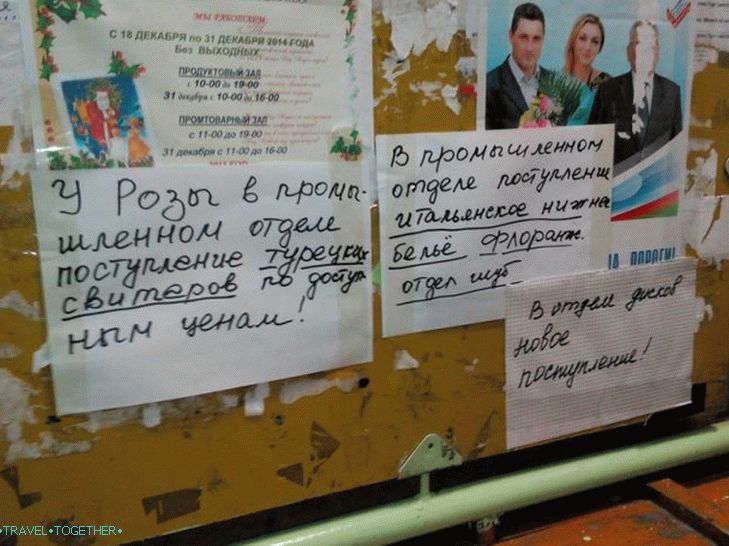 МЫ РАБОТАЕМ:
С 18 ДЕКАБРЯ по 31 ДЕКАБРЯ 2014 ГОДА
Без ВЫХОДНЫХ
ПРОДУКТОВЫЙ ЗАЛ
с 10-00 до 19-00
31 декабря с 10-00 до 16-00
ПРОМТОВАРНЫЙ ЗАЛ
с 11-00 до 19-00
31 декабря с 11-00 до 16-00
У Розы в промы-
шленном отделе
поступление турецких
свитеров по доступ
ным ценам!
В промышленном
отделе поступление
итальянское нижнее
бельё Флоранж.
отдел шуб
В отдел дисков
новое
поступление!
•TRAVEL•TOGETHER•